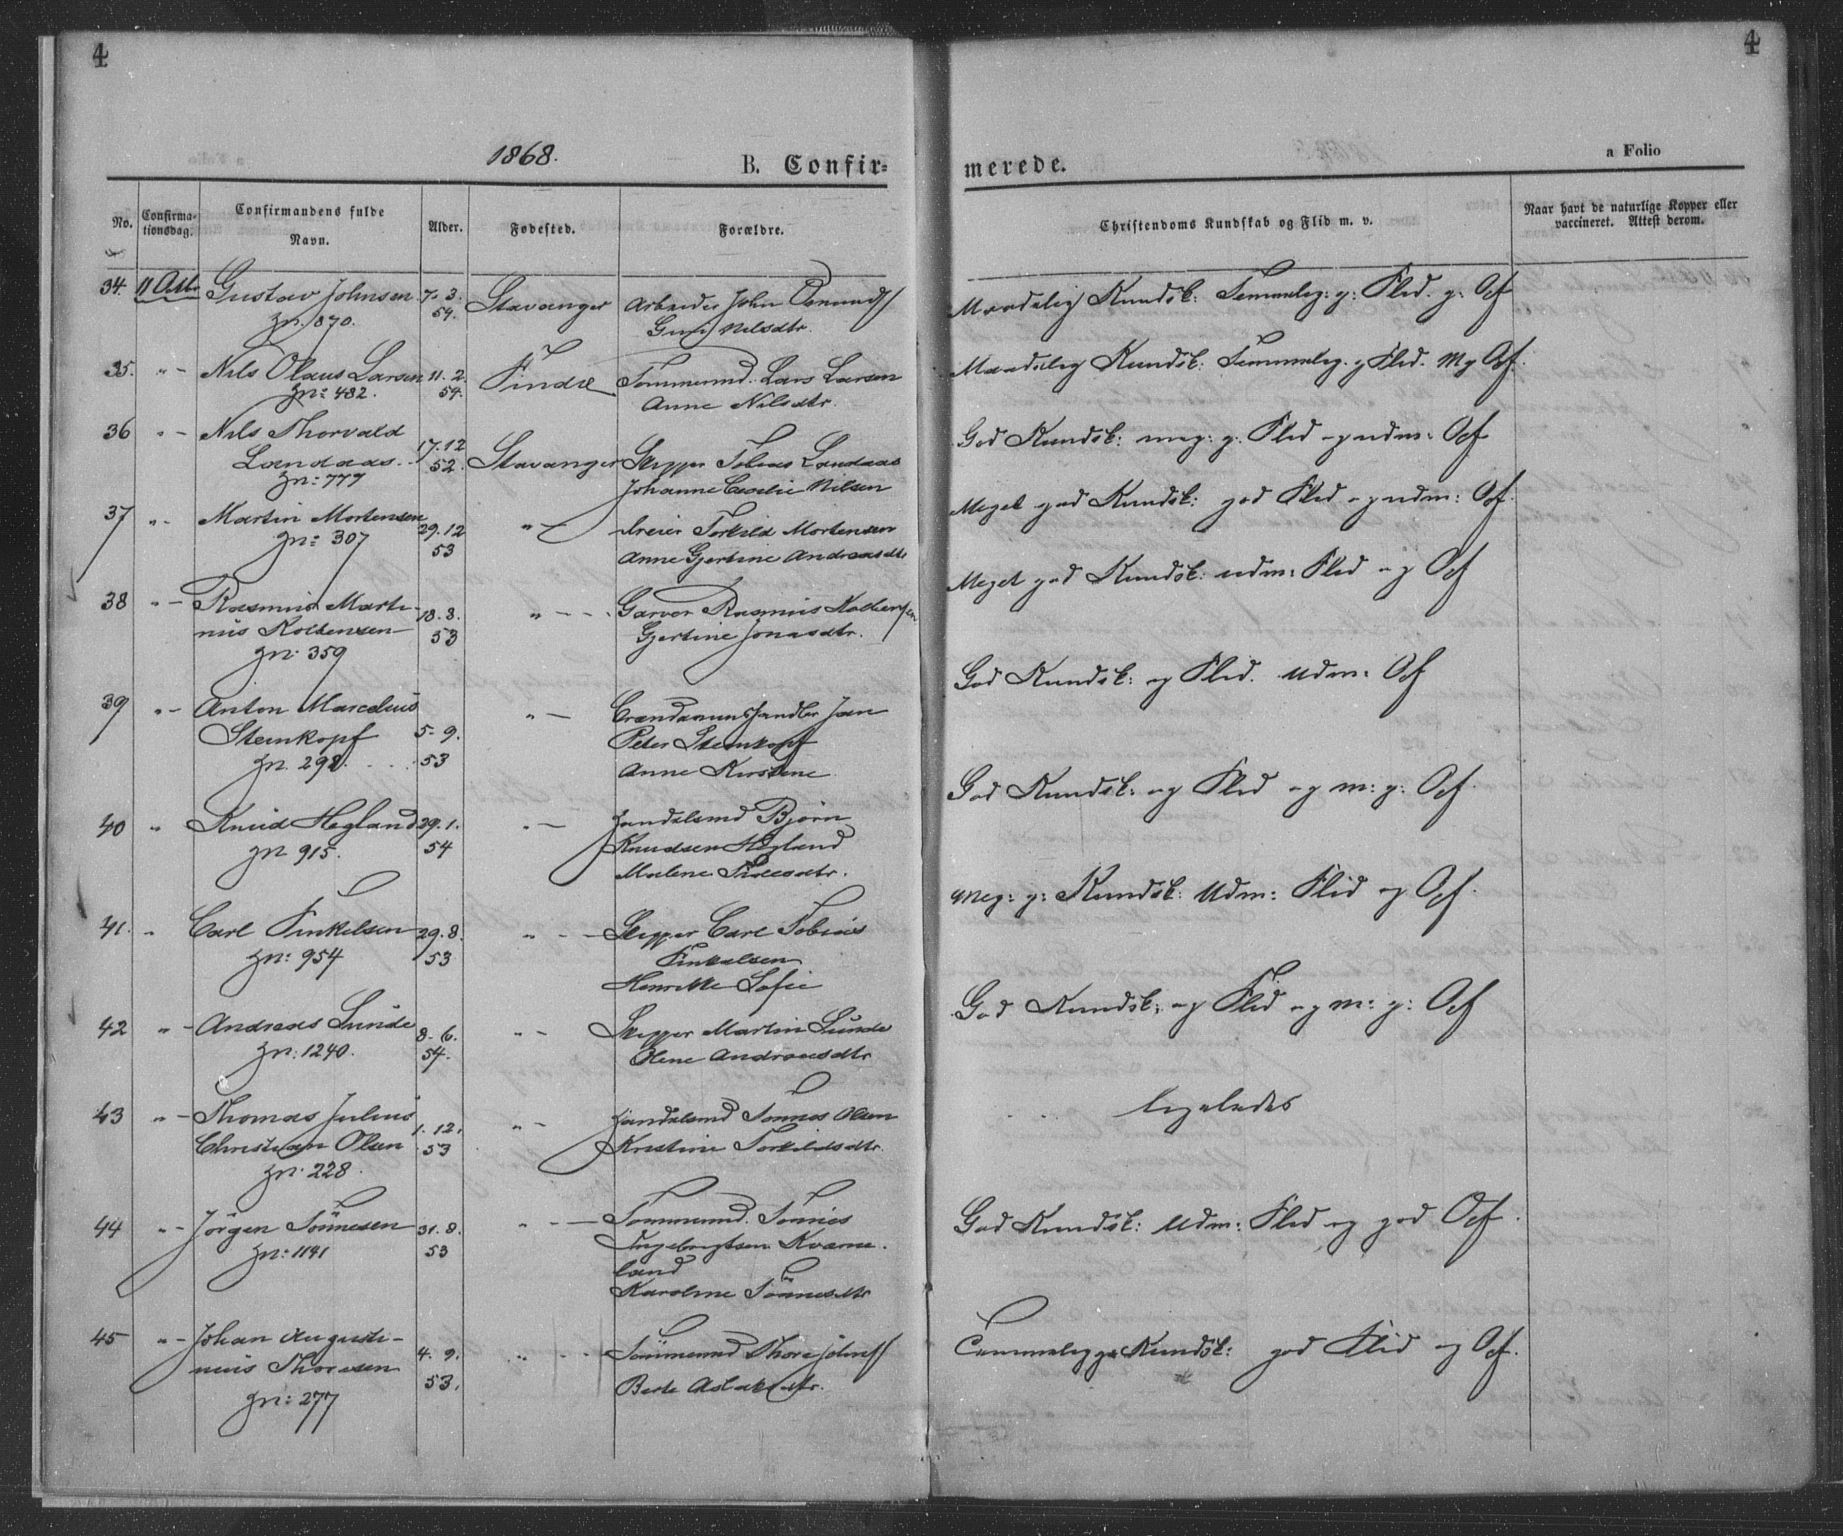 4
4
1868.
B. Confir=
merede.
a Folio
No.
Confirma-
tionsdag.
Confirmandens fulde
Navn.
Alder.
Fødested.
Forældre.
Christendoms Kundskab og Flid m. v.
Naar havt de naturlige Kopper eller
vaccineret. Attest derom.
34. 11 Octb. Gustav Johnsen 7. 3. Stavanger Arbeider John
54.
gn. 870. Nilsdtr.
Maadelig Kundsk: Temmelig: g: Flid. g: Opf
35. " - Nils Olaus Larsen 11. 2. Findø Tømmermd. Lars Larsen
gn: 482. 54. Anne Nilsdtr.
Maadelig Kundsk: Temmelig. g Flid. M g Opf.
36 " - Nils Thorvald 17. 12
Landaas. 52. Stavanger Skipper Tobias Landaas
gn: 779 Johanne Cecilie Nilsen
God Kundsk: meg: g. Flid og udm: Opf
37 " - Martin Mortensen 29. 12 " - Dreier Torkild Mortensen
gn: 307 53 Anne Gjertine Andreasdtr
Meget god Kundsk: god Flid og udm: Opf.
38 " - Rasmus Marti- 18. 3. " - - Garver Rasmus
nius Koltensen 53 Gjertine Jonasdtr.
gn. 359
Meget god Kundsk: udm: Flid og Opf
39 " - Anton Marcelius 5- 9. " - Jan
Stenkopf Peter Stenkopf
gn. 298. 53 Anne Kirstine
God Kundsk: og Flid. Udm: Opf
40 " Knud Hegland 29. 1. " - Handelsmd Bjørn
gn 915. 54 Knudsen Hegland
Malene
God Kundsk: og Flid og m: g: Opf.
41. " Carl Finkelsen 29. 8. " - - Skipper Carl Tobias
gn: 954 53 Finkelsen
Henrikke Sofie
Meg: g: Kundsk: Udm: Flid og Opf.
42 " - Andreas Lunde 8. 6. " - Skipper Martin Lunde
gn: 1240. 54. Olene Andreasdtr
God Kundsk: og Flid og m: g: Opf
43 " - Thomas Julius 1. 12. " - Handelsmd Tønnes Olsen
Christian Olsen 53 Kristine Torkildsdtr.
gn. 228.
ligeledes
44 " - Jörgen Tönnesen 31. 8. " - - Tømmermd. Tønnes
gn: 1141 53 Ingebregtsen Kværne-
land
Karoline Tönnesdtr
God Kundsk: Udm: Flid og god Opf.
45 " - Johan Augusti- 4. 9. " - - Tømmermd Thore
nius Thoresen 53. Berte Aslaksdtr.
gn: 277
Temmelig g Kundsk: god Flid og Opf.